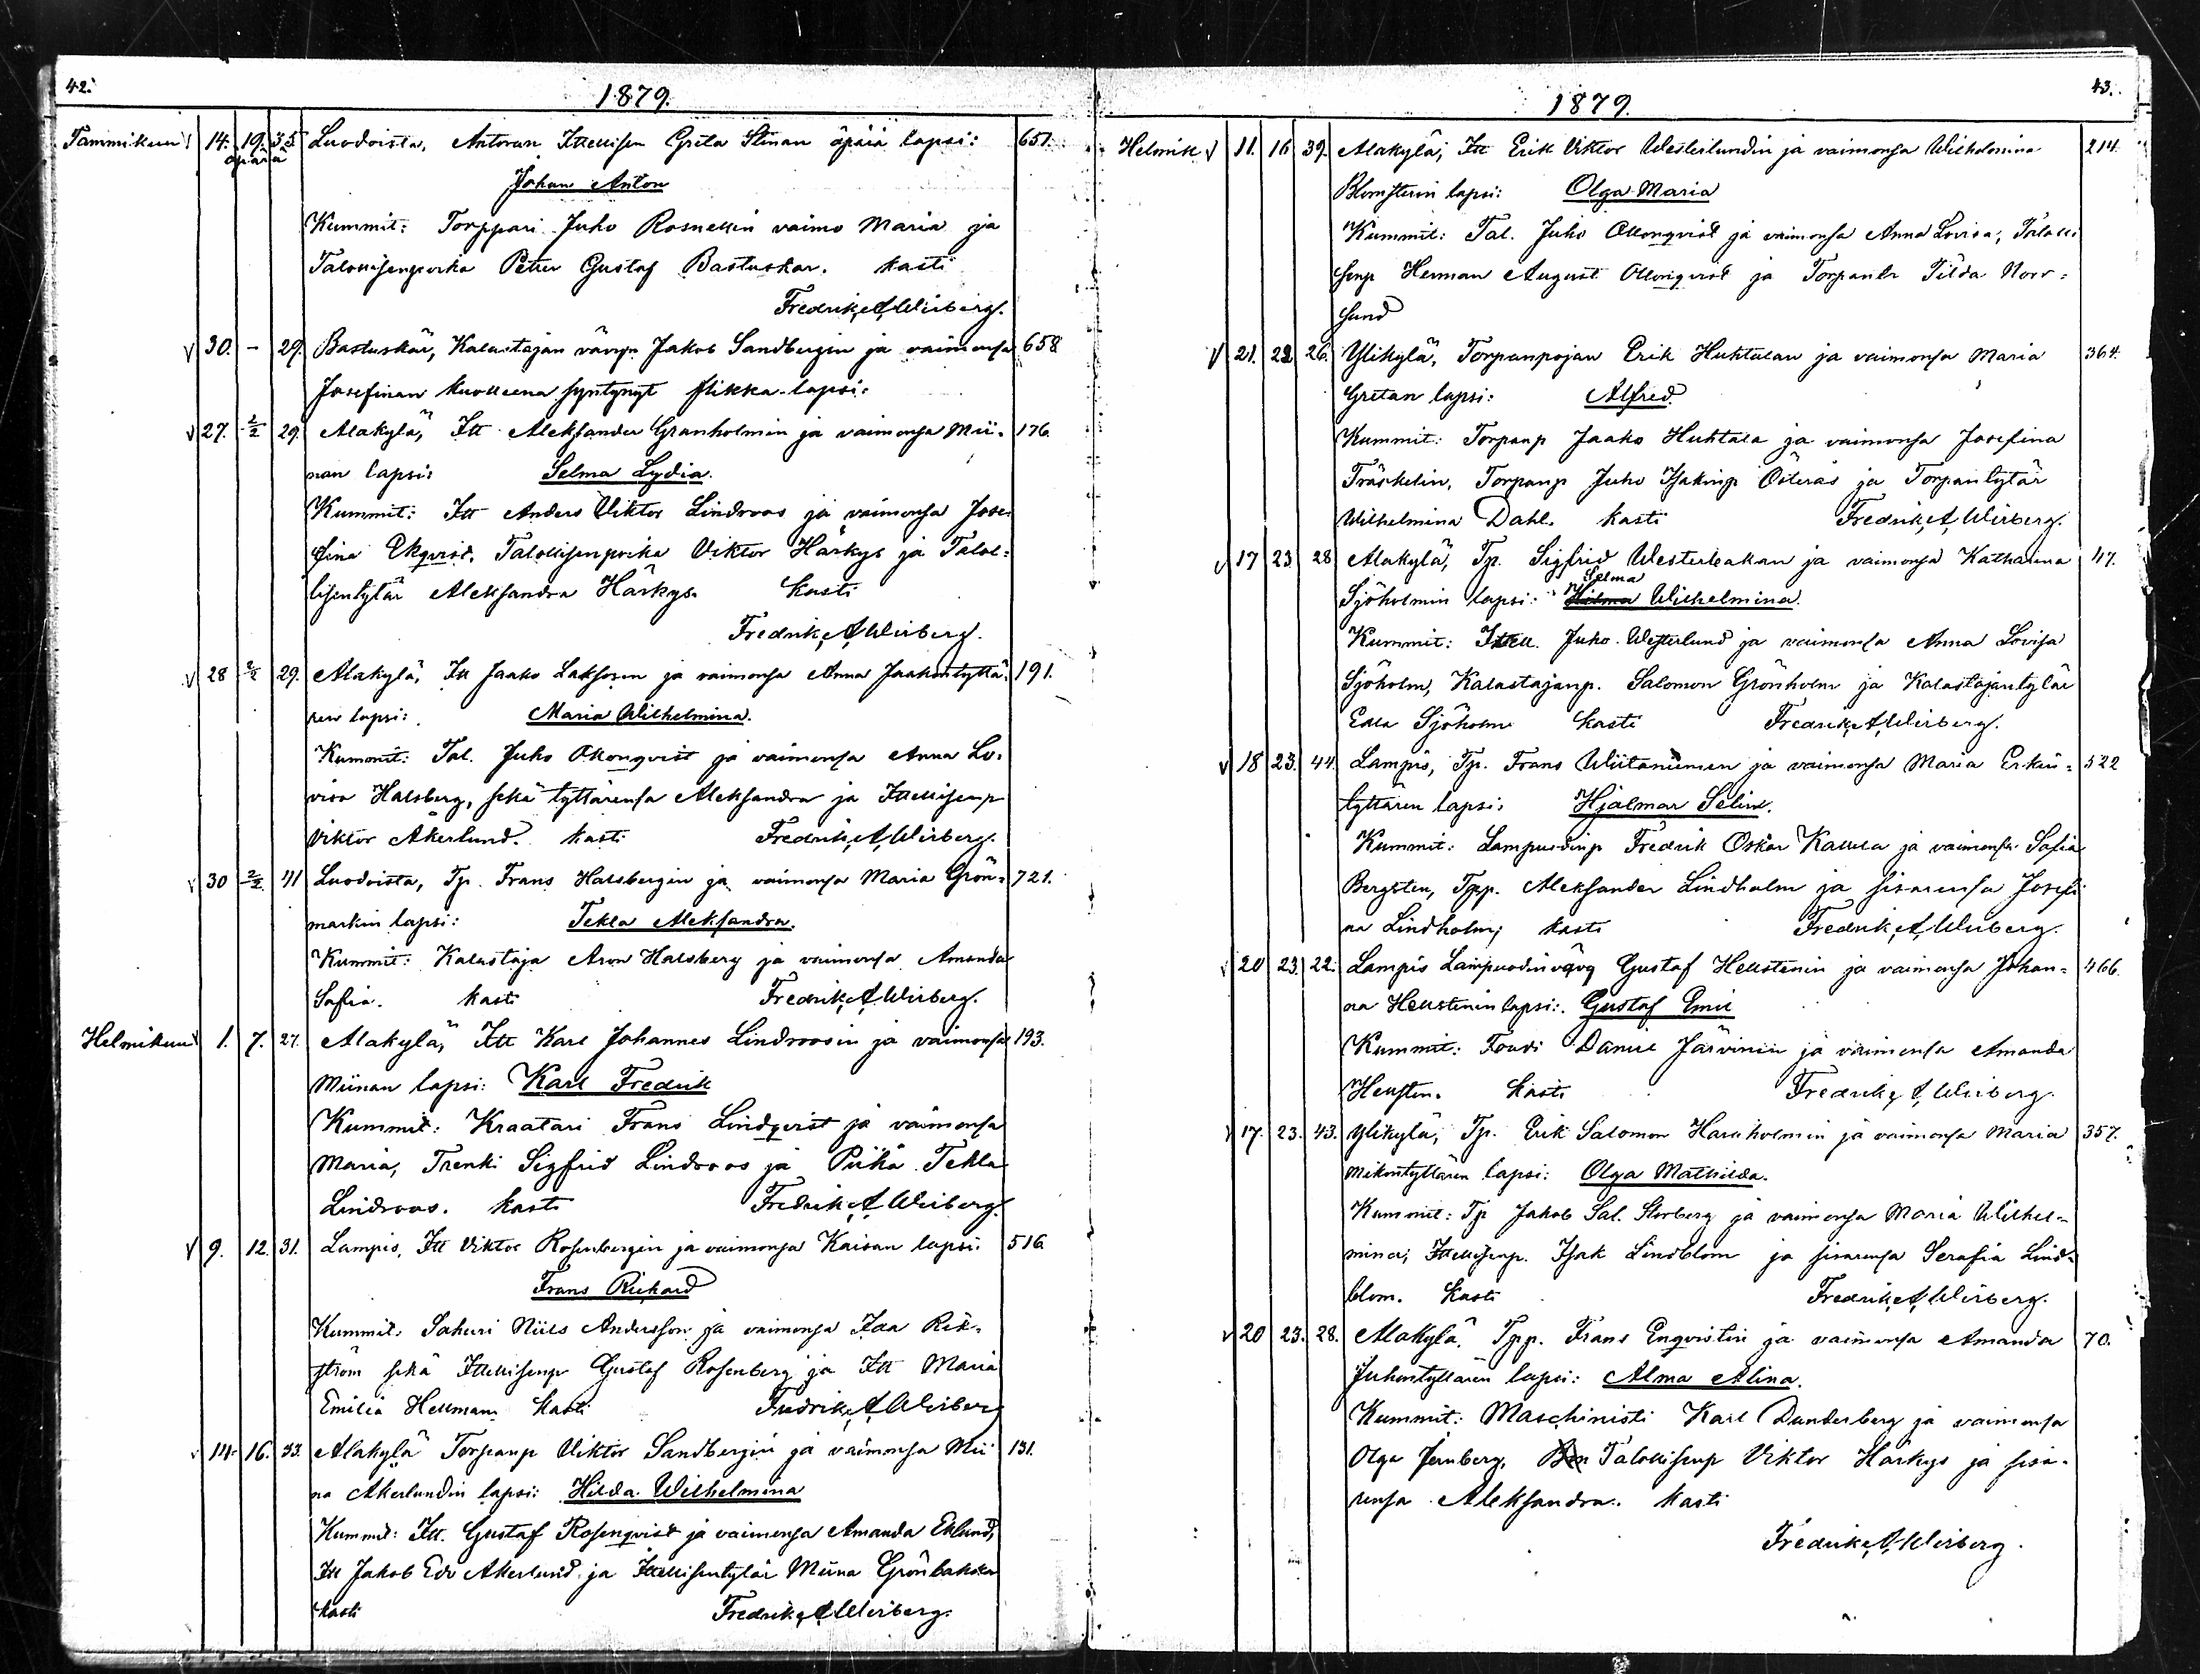 42.
1879.
Tammikuu 14. 19. 35 Luodoista, Antoran Ittellisen Greta Stinan äpärä lapsi: 651.
äpärä
Johan Anton
Kummit: Torppari Juho Rosnellin vaimo Maria ja
Talollisenpoika Petter Gustaf Bastuskär. kasti
Fredrik A Wirberg.
V 30. – 29. Bastuskär, Kalastajan vävyn Jakob Sandbergin ja vaimonsa 658
Josefinan kuolleena syntynyt flikka-lapsi.
V 27. 2/2 29. Alakylä, Itt Aleksander Granholmin ja vaimonsa Mii- 176.
nan lapsi: Selma Lydia.
Kummit: Itt Anders Viktor Lindroos ja vaimonsa Jose-
fina Ekqvist, Talollisenpoika Viktor Härkys ja Talol-
lisentytär Aleksandra Härkys. kasti
Fredrik A Wirberg.
V 28 2/2 29. Alakylä, Itt Jaako Laksosen ja vaimonsa Anna Jaakontyttä- 191.
ren lapsi: Maria Wilhelmina.
Kummit: Tal. Juho Ollonqvist ja vaimonsa Anna Lo-
visa Halsberg, sekä tyttärensä Aleksandra ja Ittellisenp
Viktor Åkerlund. kasti Fredrik A Wirberg.
V 30 2/2 41 Luodoista, Tp. Frans Halsbergin ja vaimonsa Maria Grön- 721.
markin lapsi: Tekla Aleksandra.
Kummit: Kalastaja Aron Halsberg ja vaimonsa Amanda
Sofia. kasti Fredrik A Wirberg.
Helmikuu 1. 7. 27. Alakylä, Itt Karl Johannes Lindroosin ja vaimonsa 193.
Miinan lapsi: Karl Fredrik
Kummit: Kraatari Frans Lindqvist ja vaimonsa
Maria, Trenki Sigfrid Lindroos ja Piika Tekla
Lindroos. kasti Fredrik A Wirberg.
V 9. 12. 31. Lampis, Itt Viktor Rosenbergin ja vaimonsa Kaisan lapsi: 516
Frans Richard
Kummit. Sahuri Niils Andersson ja vaimonsa Ida Rik-
ström sekä Ittellisenp Gustaf Rosenberg ja Itt Maria
Emilia Hellman, kasti Fredrik A Wirberg
14. 16. 33. Alakylä Torpanp Viktor Sandbergin ja vaimonsa Mii 131.
na Åkerlundin lapsi: Hilda Wilhelmina
Kummit: Itt. Gustaf Rosenqvist ja vaimonsa Amanda Eklund,
Itt Jakob Edv Åkerlund ja Ittellisentytär Miina Grönbakka
kasti Fredrik A Wirberg.
43.
1879.
Helmik V 11. 16 39. Alakylä, Itt Erik Viktor Westerlundin ja vaimonsa Wilhelmina 214.
Blomsterin lapsi: Olga Maria
Kummit: Tal. Juho Ollonqvist ja vaimonsa Anna Lovisa, Talolli
senp Herman August Ollonqvist ja Torpantr Tilda Norr-
sund
V 21. 22 26. Ylikylä, Torpanpojan Erik Huhtalan ja vaimonsa Maria 364.
Gretan lapsi: Alfred.
Kummit: Torpanp Jaako Huhtala ja vaimonsa Josefina
Träskelin, Torpanp Juho Isakinp Österås ja Torpantytär
Wilhelmina Dahl. kasti Fredrik A Wirberg.
V 17 23 28 Alakylä, Tp. Sigfrid Westerbakan ja vaimonsa Katharina 47.
Selma
Sjöholmin lapsi: Hilma Wilhelmina.
Kummit: Ittell. Juho Westerlund ja vaimonsa Anna Lovisa
Sjöholm, Kalastajanp. Salomon Grönholm ja Kalastajantytär
Edla Sjöholm kasti Fredrik A Wirberg.
V 18 23. 44. Lampis, Tp. Frans Wiitaniemen ja vaimonsa Maria Erkin- 522
tyttären lapsi: Hjalmar Selim.
Kummit: Lampuodinp Fredrik Oskar Kallela ja vaimonsa Sofia
Bergsten, Tpp. Aleksander Lindholm ja sisarensa Josefi
na Lindholm; kasti Fredrik A Wirberg.
V 20 23. 22. Lampis Lampuodin vävy Gustaf Hellstenin ja vaimonsa Johan- 466.
na Hellstenin lapsi: Gustaf Emil
Kummit: Fouti Daniel Järvinin ja vaimonsa Amanda
Hellsten. kasti Fredrik A Wirberg.
V 17. 23. 43. Ylikylä, Tp. Erik Salomon Haraholmin ja vaimonsa Maria 357.
Mikontyttären lapsi: Olga Mathilda.
Kummit: Tp Jakob Sal. Storberg ja vaimonsa Maria Wilhel-
mina, Ittellisenp. Isak Lindblom ja sisarensa Serafia Lind-
blom. kasti Fredrik A Wirberg.
V 20 23. 28. Alakylä, Tpp. Frans Enqvistin ja vaimonsa Amanda 70.
Juhontyttären lapsi: Alma Alina.
Kummit: Maschinisti Karl Dunderberg ja vaimonsa
Olga Jernberg, Talollisenp Viktor Härkys ja sisa-
rensa Aleksandra. kasti
Fredrik A Wirberg.